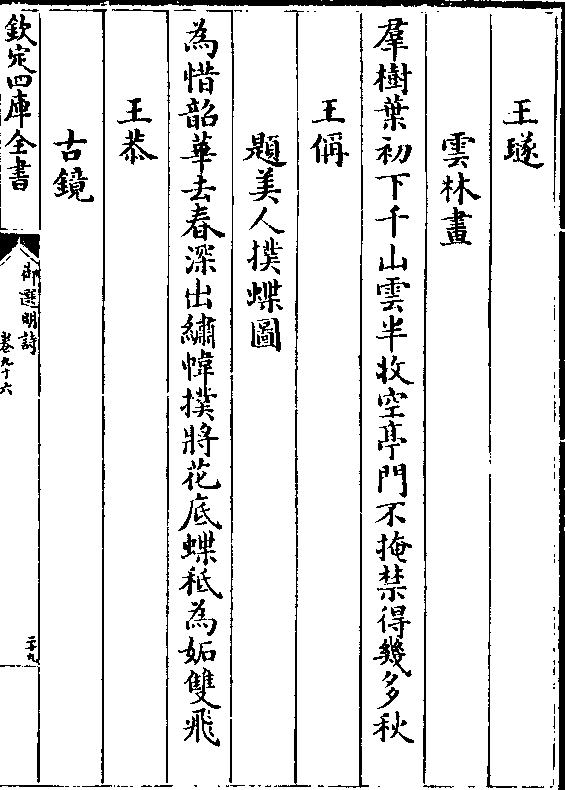 王璲
雲林畫
羣樹葉初下千山雲半收空亭門不掩禁得幾多秋
王偁
題美人撲蝶圖
為惜韶華去春深出繡幃撲將花底蝶秪為妬雙飛
王恭
古鏡
欽定四庫全書
御選明詩
卷九十六
二十九